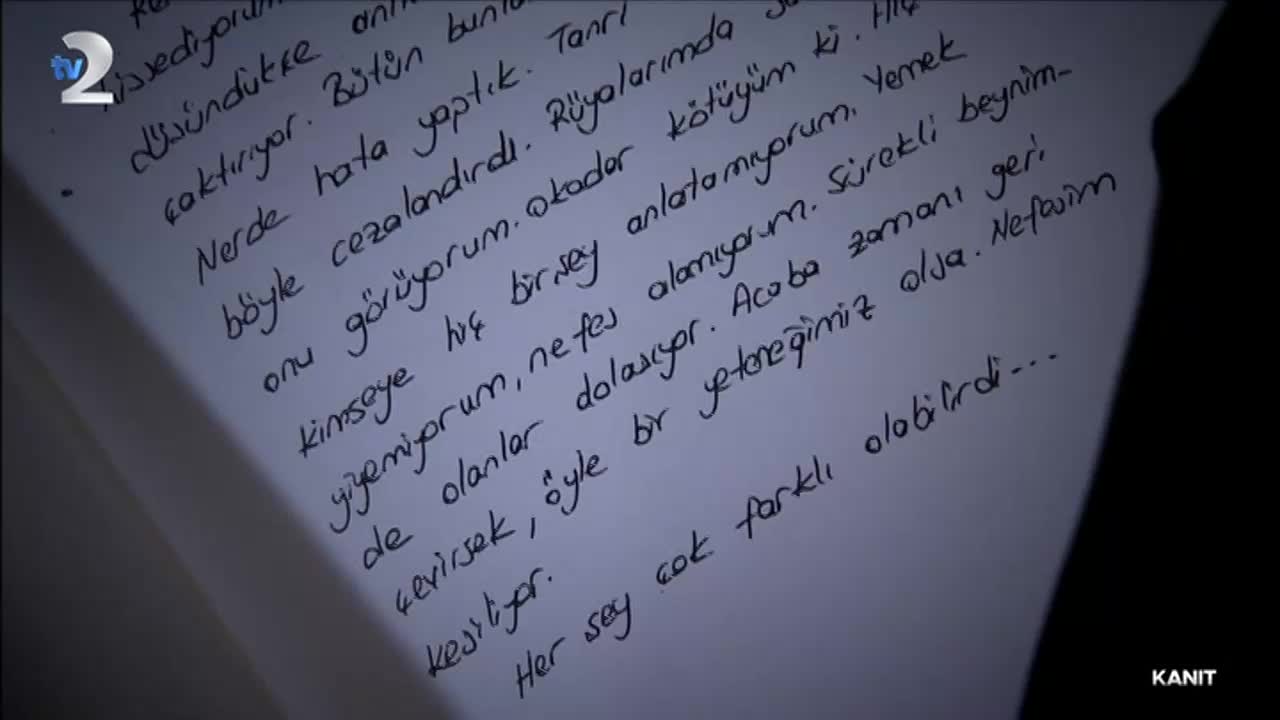 tv2
hissediyorum
düşündükçe
çaktırıyor. Bütün
Nerde hata yaptık. Tanrı
böyle cezalandırdı. Rüyalarımda
onu görüyorum. Okadar kötüyüm ki. Hiç
kimseye hiç birşey anlatamıyorum. Yemek
yiyemiyorum, nefes alamıyorum. Sürekli beynim-
de olanlar dolasıyor. Acaba zamanı geri
çevirsek, öyle bir yeteneğimiz olsa. Nefesim
kesiliyor.
Her sey çok farklı olabilirdi...
KANIT